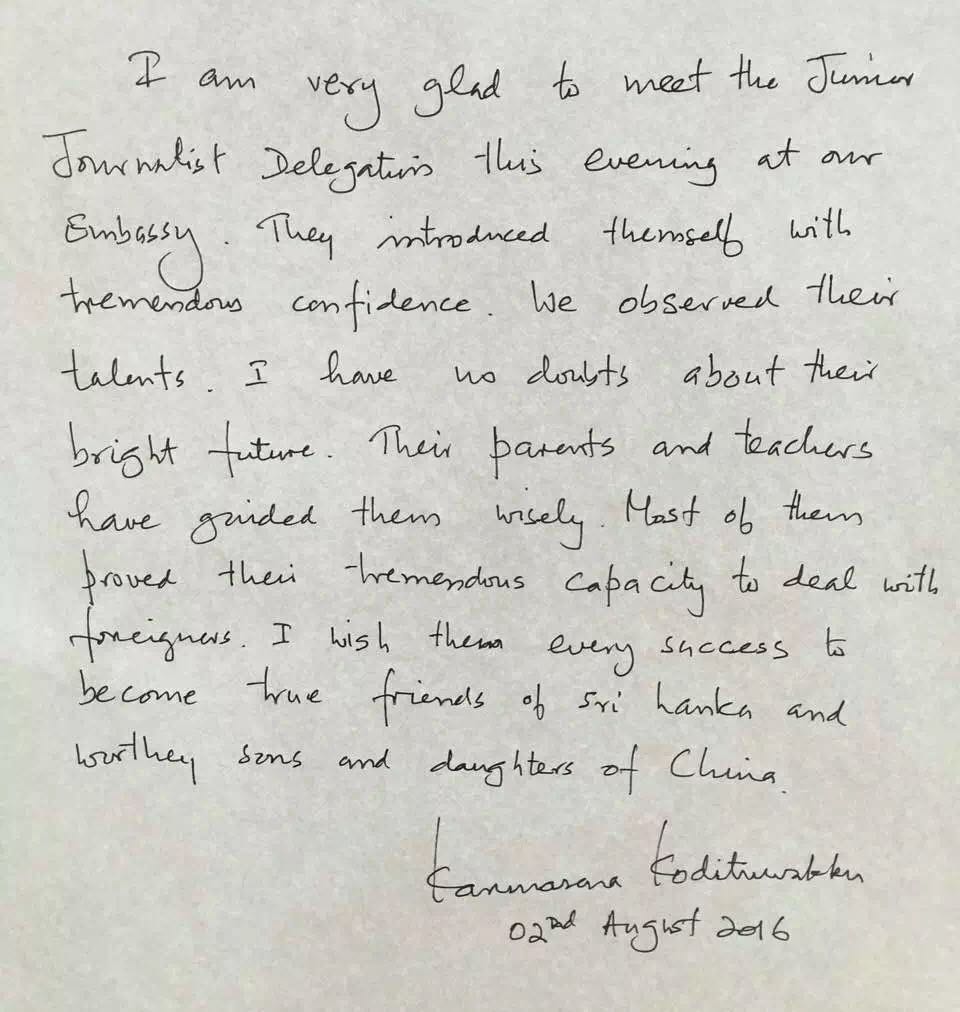 I am very glad to meet the Junior
Journalist Delegation this evening at our
Embassy. They introduced themself with
tremendous confidence. We observed their
talents. I have no doubts about their
bright future. Their parents and teachers
have guided them wisely. Most of them
proved their tremendous capacity to deal with
foreigners. I wish them every success to
become true friends of Sri Lanka and
worthey sons and daughters of China.
Karunasena Kodituwakku
02nd August 2016